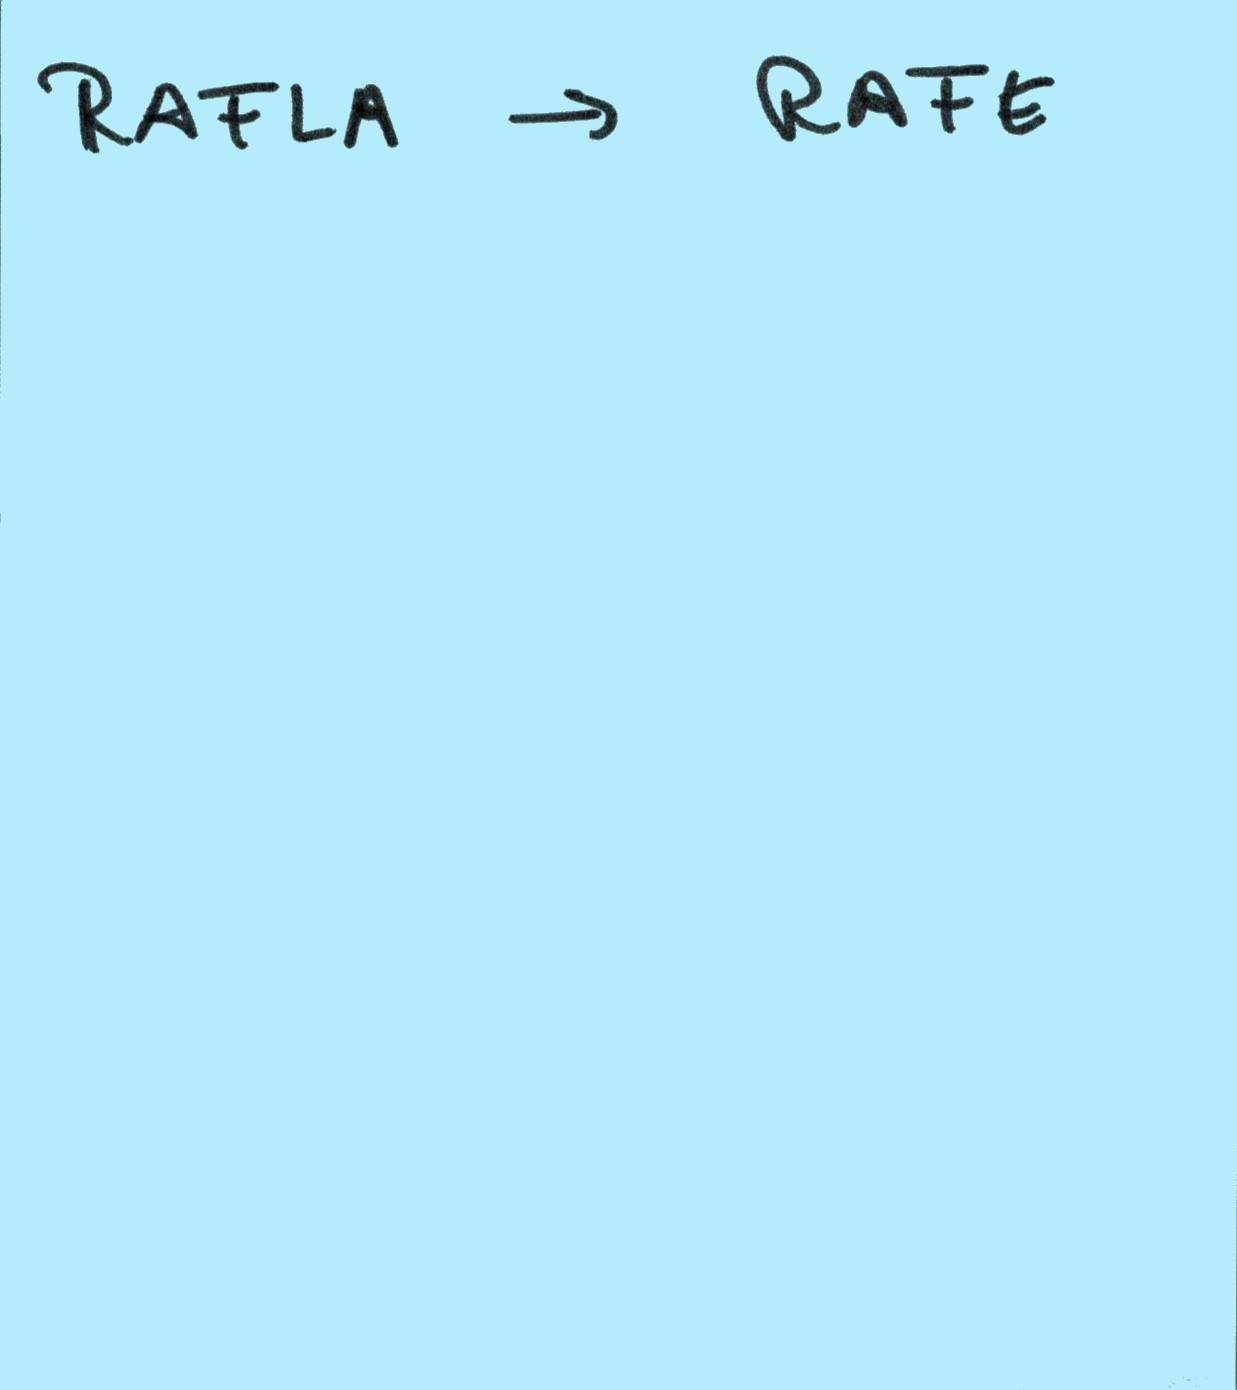 RAFLA → RAFE